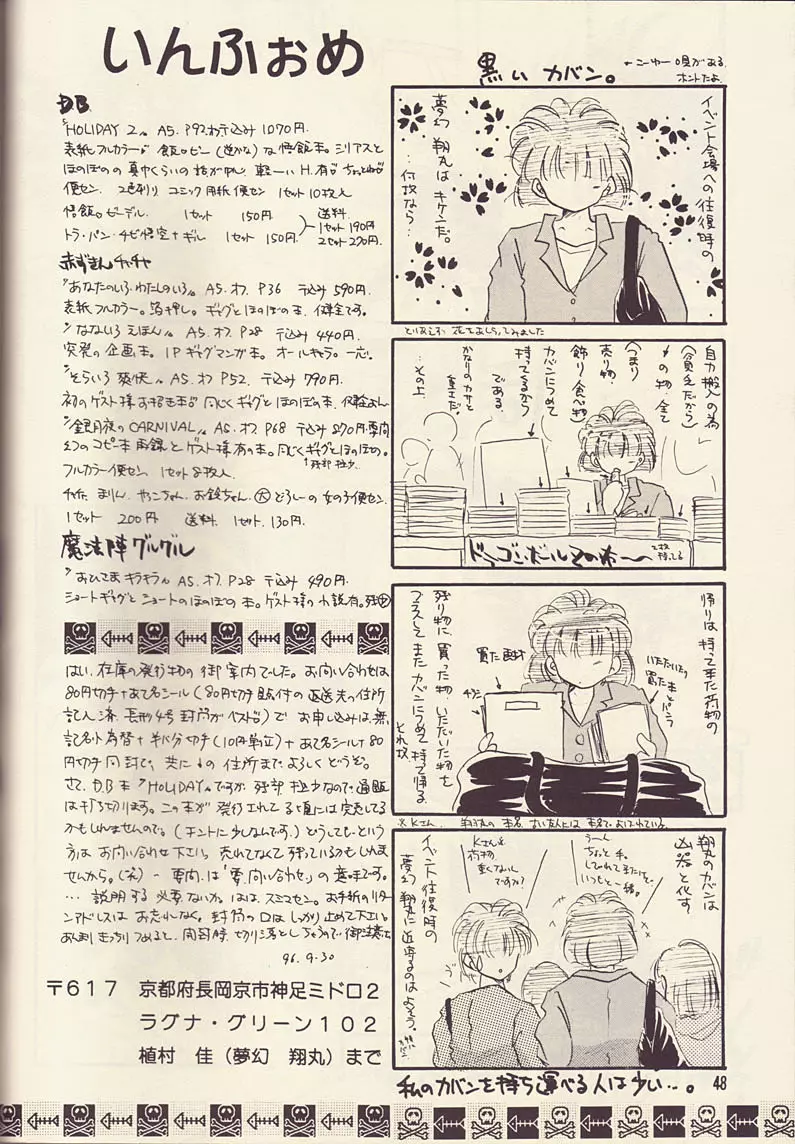 いんふぉめ
D.B.
"HOLIDAY 2" A5. P92 わ 〒込み 1070円.
表紙フルカラー。飯ロビー(逆かな)な悟飯本。シリアスと
ほのぼのの真中くらいの
便セン. 2色刷り コミック用紙便セン 1セット10枚入
悟飯。ビーデル. 1セット 150円
トラ・パン・チビ悟空+ギル 1セット 150円
送料
1セット190円
2セット270円.
赤ずきんチャチャ
"あなたのいろ わたしのいろ" A5. オフ. P36 〒込み 590円.
表紙フルカラー。箔押し。ギャグとほのぼの本. 健全です。
"なないろ えほん" A5. オフ. P28 〒込み 440円.
突発の企画本。1PギャグマンガA本。オールキャラ。一応。
"そらいろ 爽快" A5. オフ P52. 〒込み 790円.
初のゲスト様お招き本 同じくギャグとほのぼの本.
"銀月夜のCARNIVAL" A5. オフ P68 〒込み 870円. 要向
幻のコピー本 再録とゲスト様有の本。同じくギャグとほのぼの。
↑残部極少
フルカラー便セン. 1セット8枚入.
チャチャ. まりん. やっこちゃん. お鈴ちゃん. 大 どろしーの女の子便セン.
1セット 200円 送料. 1セット. 130円.
魔法陣グルグル
"おひさま キラキラ" A5. オフ. P28 〒込み 490円.
ショートギャグとショートのほのぼの本。ゲスト様の小説有。残中
はい. 在庫の発行物の御案内でした。お問い合わせは
80円切手+あて名シール(80円切手貼付の返送先の住所
記入済. 長形4号封筒がベスト)で お申し込みは. 無
記名小為替+半ぱ分切手(10円単位)+あて名シール+80
円切手同封で. 共に↓の住所まで. よろしくどうぞ。
さて. D.B本"HOLIDAY"ですが残部極少なので. 通販
は打ち切ります。この本が発行されてる頃には完売してる
かもしれませんので。(ホントに少ないんです.) どうしても…という
方は お問い合わせ下さい。売れてなくて残っているかもしれま
せんから。(笑) - 要向は「要.問い合わせ」の意味です。
…説明する必要ないか。ははは. スミマセン。お手紙のリター
ンアドレスは お忘れなく。封筒の口はしっかり止めて下さい。
あんまりきっちりつめると. 開封時. 切り落としちゃうので御注意を
96.9.30
〒617 京都府長岡京市神足ミドロ2
ラグナ・グリーン102
植村 佳(夢幻 翔丸)まで
黒い カバン。
←ニーゆー唄がある。
ホントだよ.
イベント会場への往復時の
夢幻 翔丸は キケンだ。
…何故なら…
とりあえず 花であしらってみました
自力搬入の為
(貧乏だから)
↓の物. 全て
(つまり
売り物
飾り
食べ物)
カバンにつめて
持ってくるから
である。
かなりのカサと
重さだ。
…その上.
ドラゴンボールその本〜
帰りは持って来た荷物の
残り物に. 買った物. いただいた物を
プラスして またカバンにつめて 持って帰る.
それ故.
買った画材
チラシ
いただいたり
買った本とパンフ
※Kさん. 翔丸の本名. 古い友人には 本名で よばれている.
翔丸のカバンは
凶器と化す
うーん
ちょっと 手.
しびれてきたけど.
いつもと一緒。
Kさん
荷物.
重くないん
ですか?
イベント往復時の
夢幻 翔丸に近寄るのはよそう。
私のカバンを持ち運べる人は少い…。
48